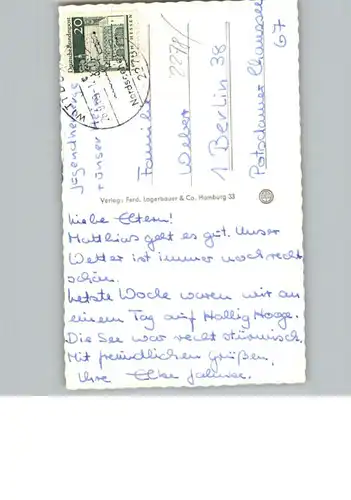 20
Deutsche Bundespost
2278/
Jugendherberge
Familie
Weber
1 Berlin 38
Potsdamer Chaussee
67
Verlag: Ferd. Lagerbauer & Co. Hamburg 33
Liebe Eltern!
Matthias geht es gut. Unser
Wetter ist immer noch recht
schön.
Letzte Woche waren wir an
einem Tag auf Hallig Hooge.
Die See war recht stürmisch.
Mit freundlichen Grüßen,
Ihre Elke